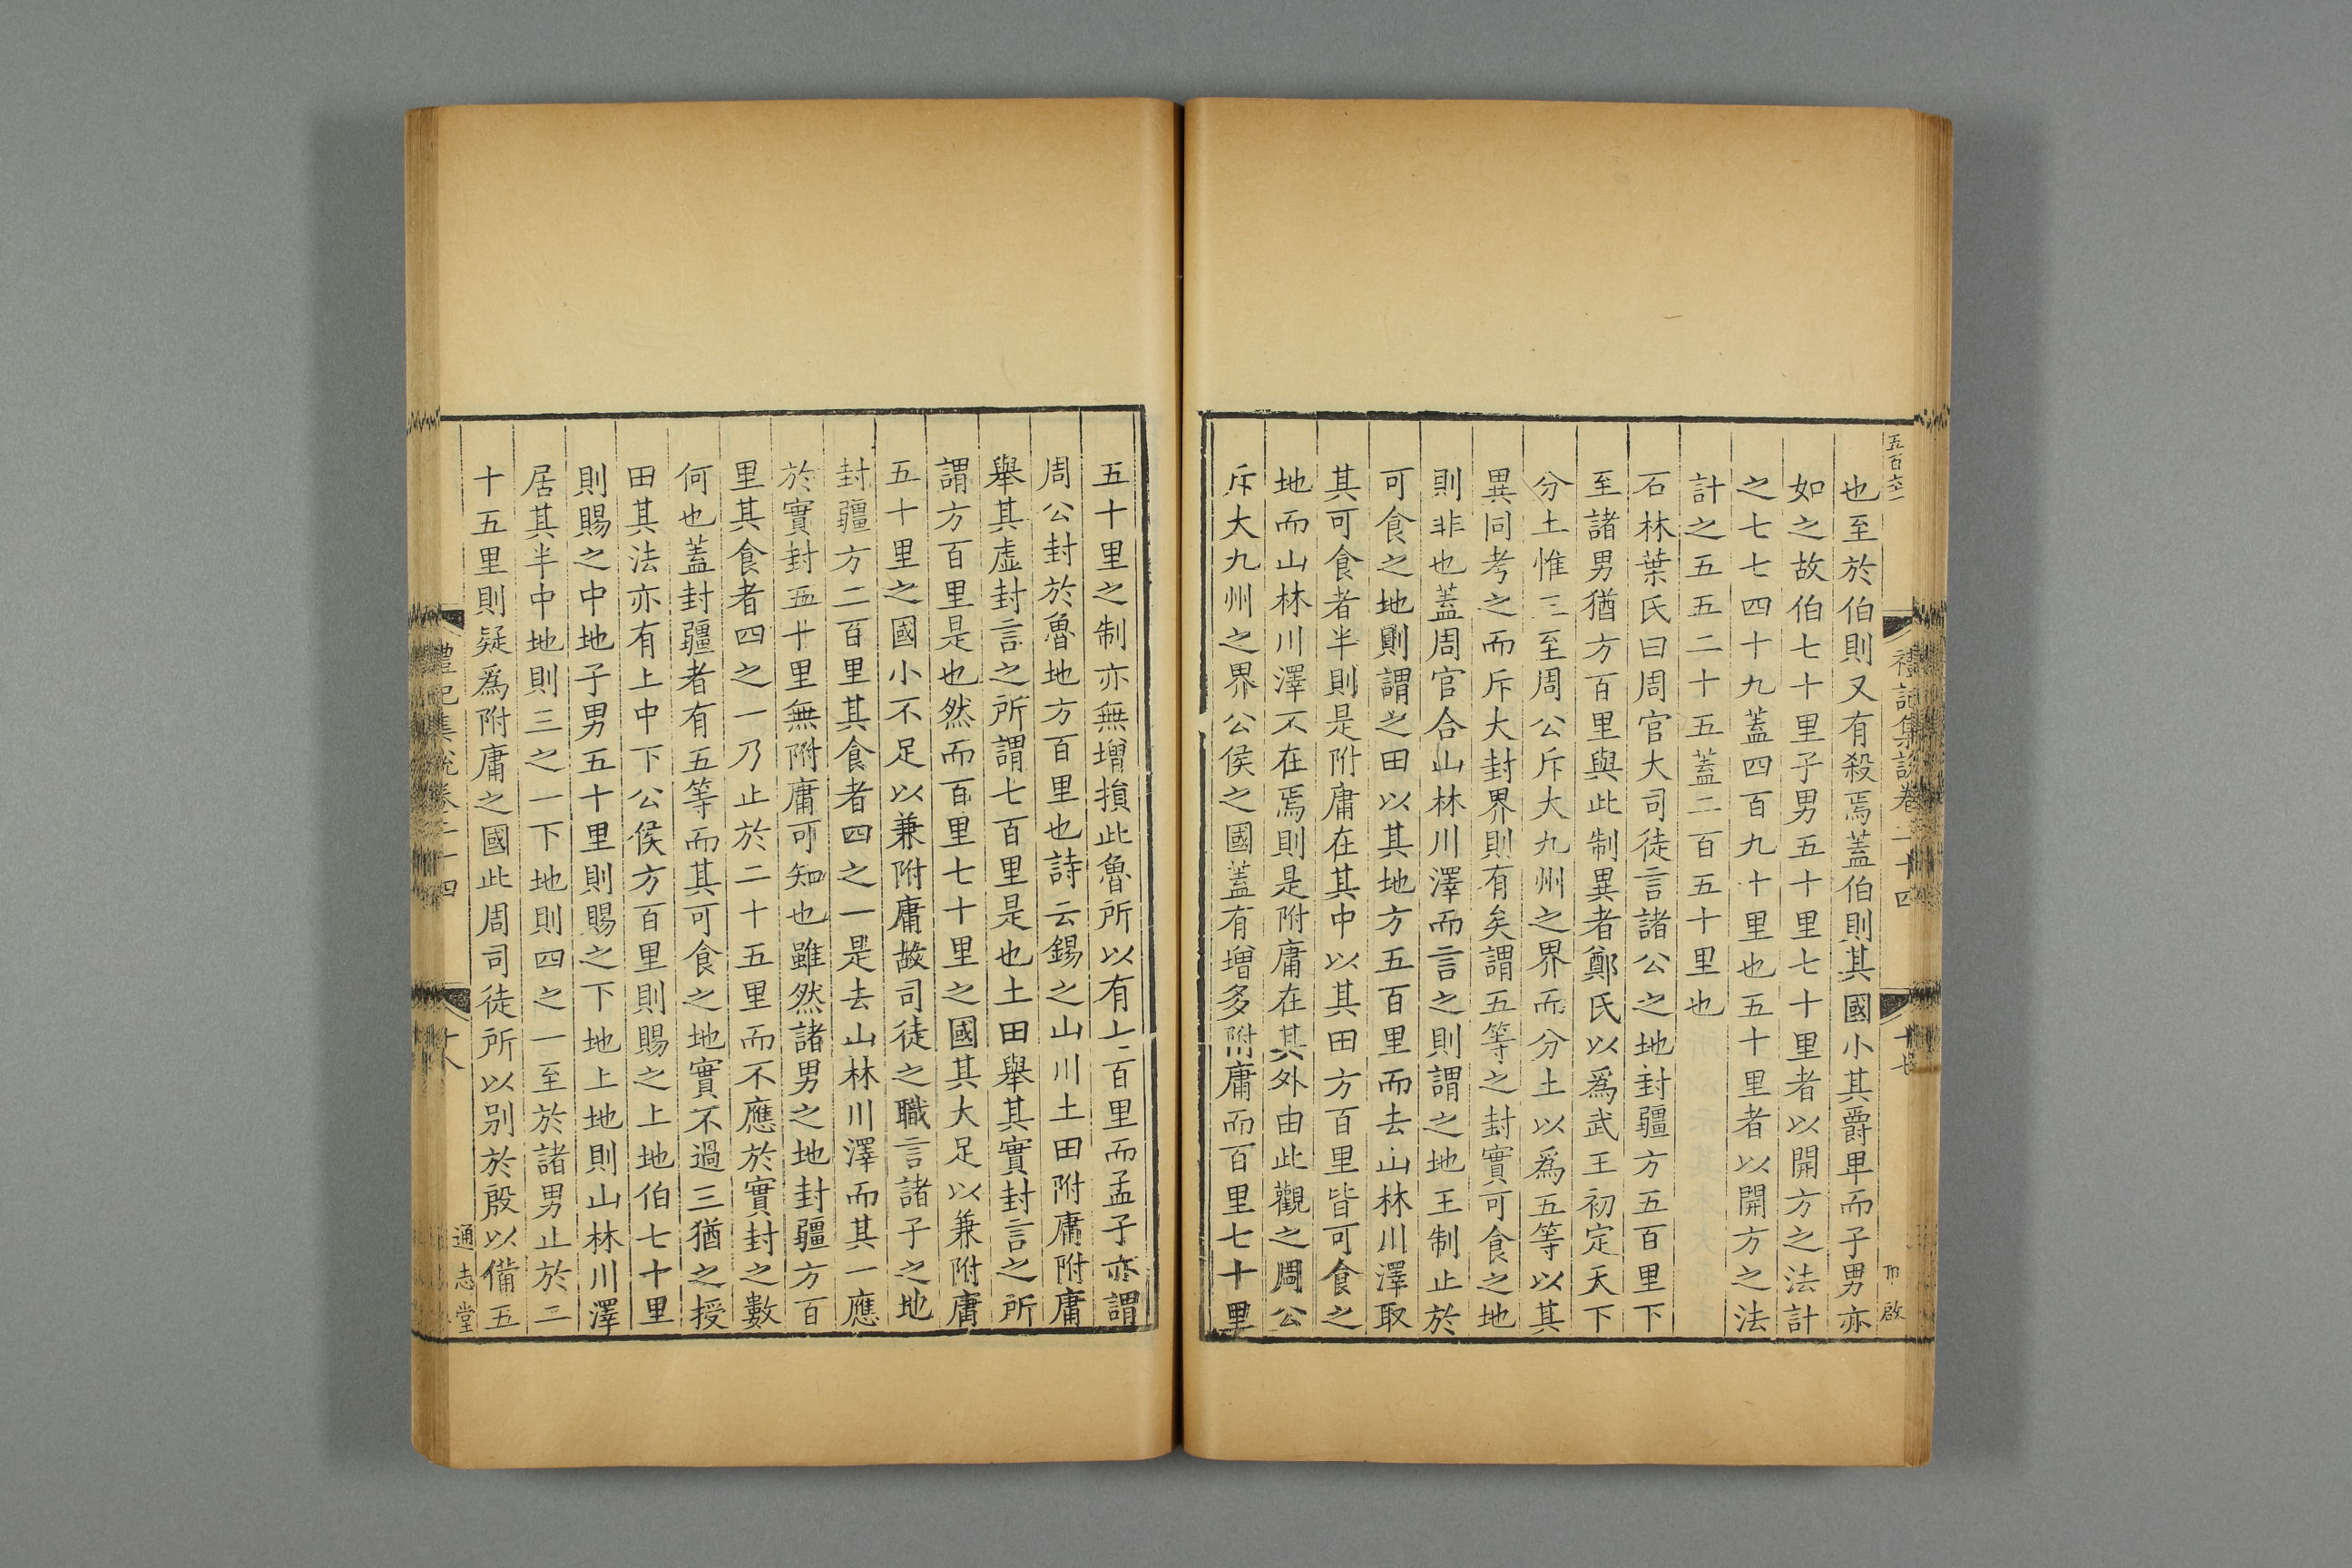 五百六一
禮記集說卷二十四
十七
啟
也至於伯則又有殺焉蓋伯則其國小其爵卑而子男亦
如之故伯七十里子男五十里七十里者以開方之法計
之七七四十九蓋四百九十里也五十里者以開方之法
計之五五二十五蓋二百五十里也
石林葉氏曰周官大司徒言諸公之地封疆方五百里下
至諸男猶方百里與此制異者鄭氏以爲武王初定天下
分土惟三至周公斥大九州之界而分土以爲五等以其
異同考之而斥大封界則有矣謂五等之封實可食之地
則非也蓋周官合山林川澤而言之則謂之地王制止於
可食之地則謂之田以其地方五百里而去山林川澤取
其可食者半則是附庸在其中以其田方百里皆可食之
地而山林川澤不在焉則是附庸在其外由此觀之周公
斥大九州之界公侯之國蓋有增多附庸而百里七十里
五十里之制亦無增損此魯所以有七百里而孟子亦謂
周公封於魯地方百里也詩云錫之山川土田附庸附庸
舉其虛封言之所謂七百里是也土田舉其實封言之所
謂方百里是也然而百里七十里之國其大足以兼附庸
五十里之國小不足以兼附庸故司徒之職言諸子之地
封疆方二百里其食者四之一是去山林川澤而其一應
於實封五十里無附庸可知也雖然諸男之地封疆方百
里其食者四之一乃止於二十五里而不應於實封之數
何也蓋封疆者有五等而其可食之地實不過三猶之授
田其法亦有上中下公侯方百里則賜之上地伯七十里
則賜之中地子男五十里則賜之下地上地則山林川澤
居其半中地則三之一下地則四之一至於諸男止於二
十五里則疑爲附庸之國此周司徒所以別於殷以備五
禮記集說卷二十四
十八
通志堂